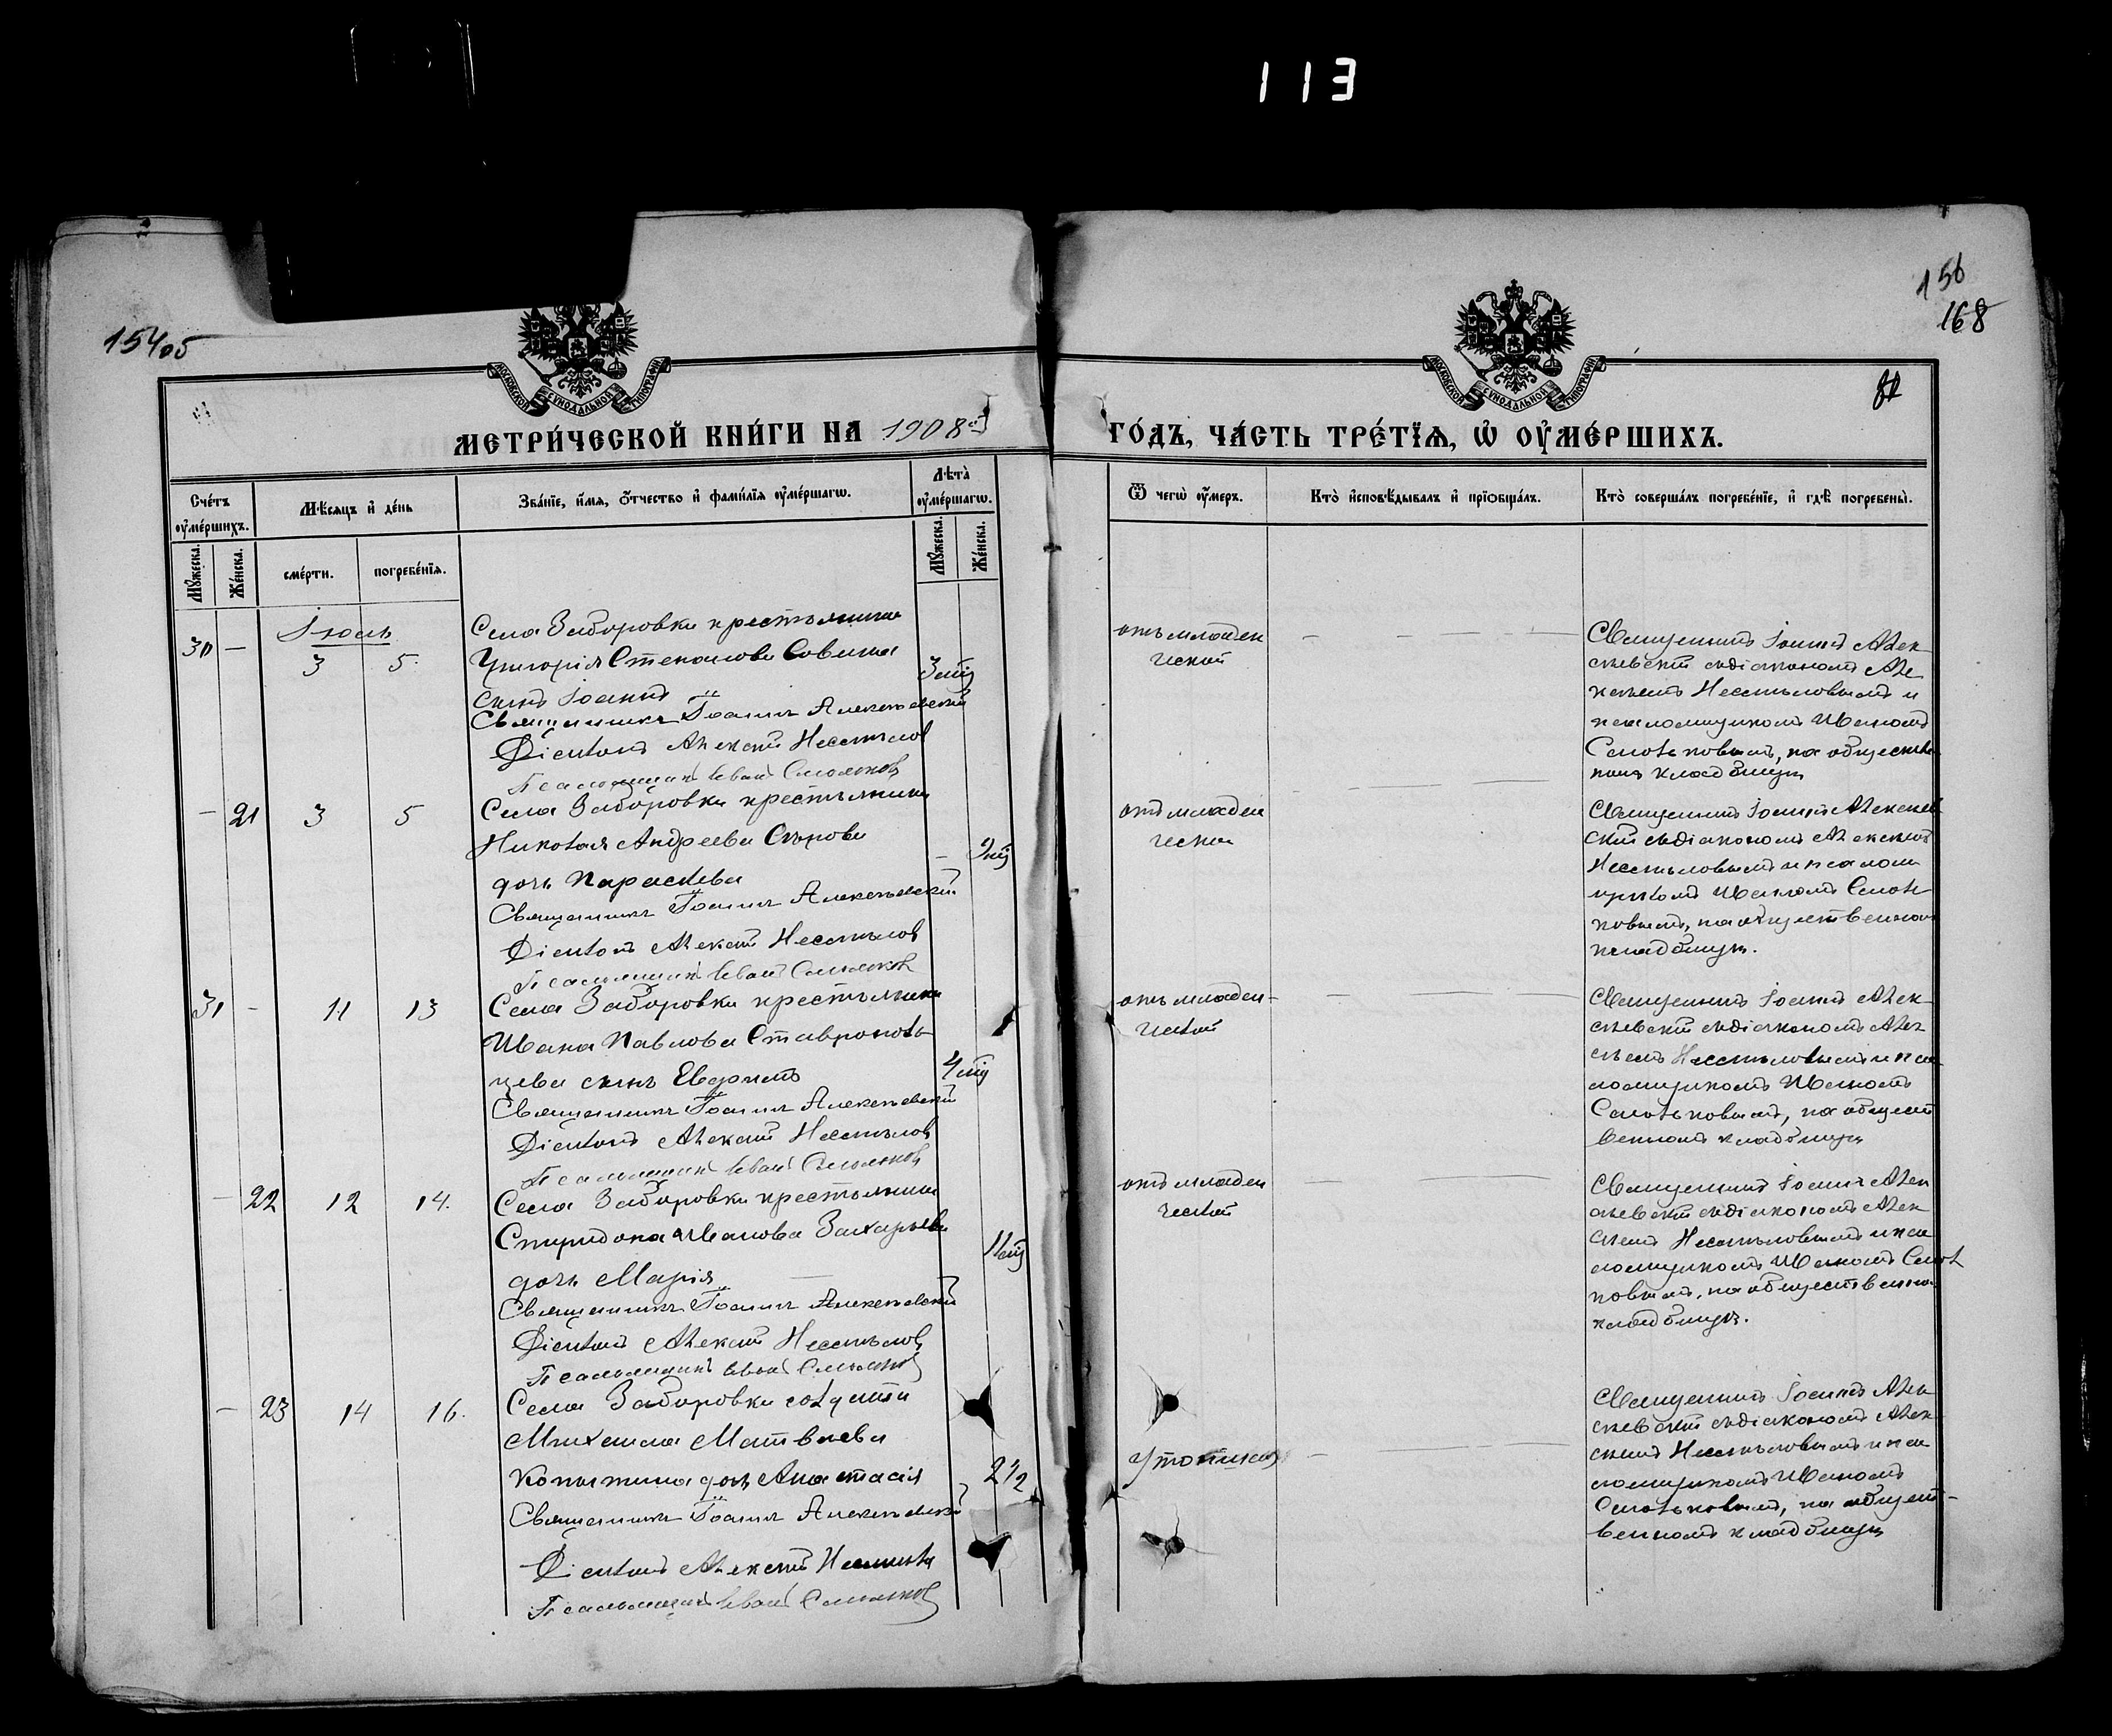 113
154об
156
168
81
МОСКОВСКОЙ СѴНОДАЛЬНОЙ ТИПОГРАФІИ
МОСКОВСКОЙ СѴНОДАЛЬНОЙ ТИПОГРАФІИ
МЕТРИ́ЧЕСКОЙ КНИ́ГИ НА 1908й
ГО́ДЪ, ЧА́СТЬ ТРЕ́ТЇѦ, Ѡ҆ ОУ҆МЕ́РШИХЪ.
Сче́тъ оу҆ме́ршихъ.
Мѣ́сяцъ и҆ де́нь
Зва́нїе, и҆́мѧ, ѻ҆́тчество и҆ фами́лїѧ оу҆ме́ршагѡ.
Лѣ́та̀ оу҆ме́ршагѡ.
Мꙋ́жеска.
Же́нска.
сме́рти.
погребе́нїѧ.
Мꙋ́жеска.
Же́нска.
Ѿ чегѡ̀ оу҆́меръ.
Кто̀ и҆сповѣ́дывалъ и҆ прїѻбща́лъ.
Кто̀ соверша́лъ погребе́нїе, и҆ гдѣ̀ погребены̀.
Іюль
30 — 3 5. Села Заборовки крестьянина
Григорія Степанова Савина
сынъ Іоаннъ
Священникъ Іоаннъ Алексѣевскій
Діаконъ Алексѣй Несмѣлов
Псаломщикъ Иван Смольков
отъ младен
ческой
Священникъ Іоаннъ Алек
сѣевскій съ діакономъ Але
ксѣемъ Несмѣловымъ и
псаломщикомъ Иваномъ
Смольковымъ, на обществен
номъ кладбищѣ
— 21 3 5 Села Заборовки крестьянина
Николая Андреева Сѣрова
— дочь Параскева
Священникъ Іоаннъ Алексѣевскій
Діаконъ Алексѣй Несмѣлов
Псаломщикъ Иван Смольков
отъ младен
ческой
Священникъ Іоаннъ Алексѣев
скій съ діакономъ Алексѣемъ
Несмѣловымъ и псалом
щикомъ Иваномъ Смоль
ковымъ, на общественномъ
кладбищѣ.
31 — 11 13 Села Заборовки крестьянина
Ивана Павлова Ставрополь
цева сынъ Евдокимъ
Священникъ Іоаннъ Алексѣевскій
Діаконъ Алексѣй Несмѣлов
Псаломщикъ Иван Смольков
отъ младен-
ческой
Священникъ Іоаннъ Алек
сѣевскій съ діакономъ Алек
сѣемъ Несмѣловымъ и пса
ломщикомъ Иваномъ
Смольковымъ, на общест
венномъ кладбищѣ
— 22 12 14. Села Заборовки крестьянина
Спиридона Иванова Захарьева
дочь Марія
Священникъ Іоаннъ Алексѣевскій
Діаконъ Алексѣй Несмѣлов
Псаломщикъ Иван Смольков
отъ младен
ческой
Священникъ Іоаннъ Алек
сѣевскій съ діакономъ Алек
сѣемъ Несмѣловымъ и пса
ломщикомъ Иваномъ Смоль
ковымъ, на общественномъ
кладбищѣ.
— 23 14 16. Села Заборовки солдата
Михаила Матвѣева
Копытина дочь Анастасія 2½
Священникъ Іоаннъ Алексѣевскій
Діаконъ Алексѣй Несмѣлов
Псаломщикъ Иван Смольков
Священникъ Іоаннъ Алек
сѣевскій съ діакономъ Алек
сѣемъ Несмѣловымъ и пса
ломщикомъ Иваномъ
Смольковымъ, на общест-
венномъ кладбищѣ